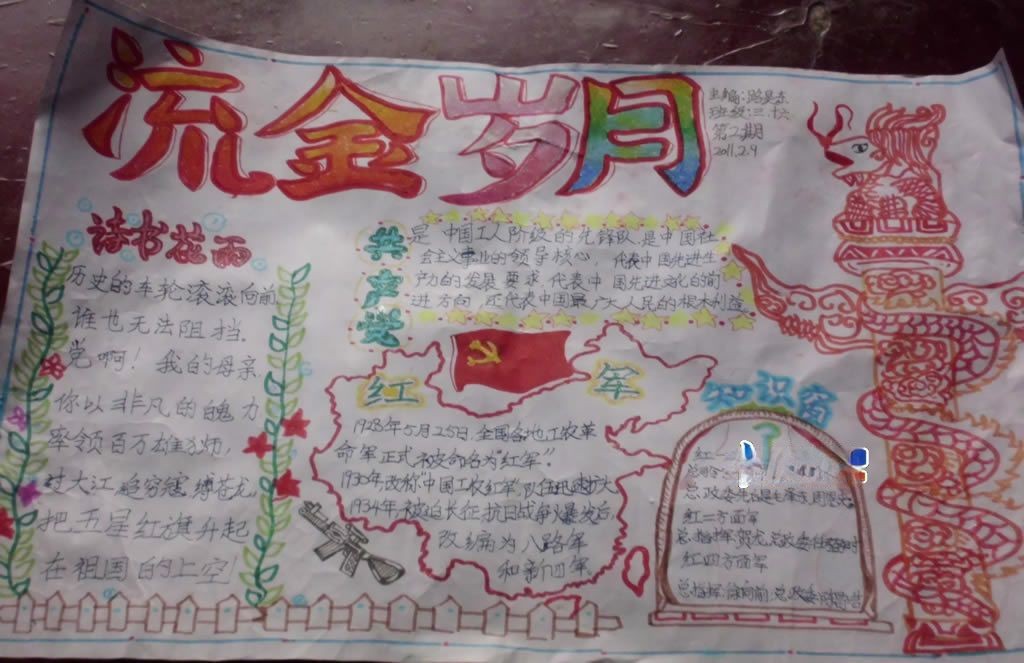 流金岁月
主编:路昊东
班级:三.十六
第二期
2011.2.9
诗书花雨
历史的车轮滚滚向前
谁也无法阻挡.
党啊! 我的母亲.
你以非凡的魄力
率领百万雄狮,
过大江 追穷寇 缚苍龙
把五星红旗升起
在祖国的上空!
共产党
是中国工人阶级的先锋队,是中国社
会主义事业的领导核心, 代表中国先进生
产力的发展要求,代表中国先进文化的前
进方向,还代表中国最广大人民的根本利益
红军
1928年5月25日,全国各地工农革
命军正式被命名为"红军".
1930年改称"中国工农红军",队伍迅速扩大
1934年被迫长征,抗日战争火暴发后,
改编为八路军
和新四军.
知识窗
?
红一
总政委先后是毛泽东 周恩来
红二方面军
总指挥:贺龙 总政委任弼时
红四方面军
总指挥:徐向前 总政委陈昌浩